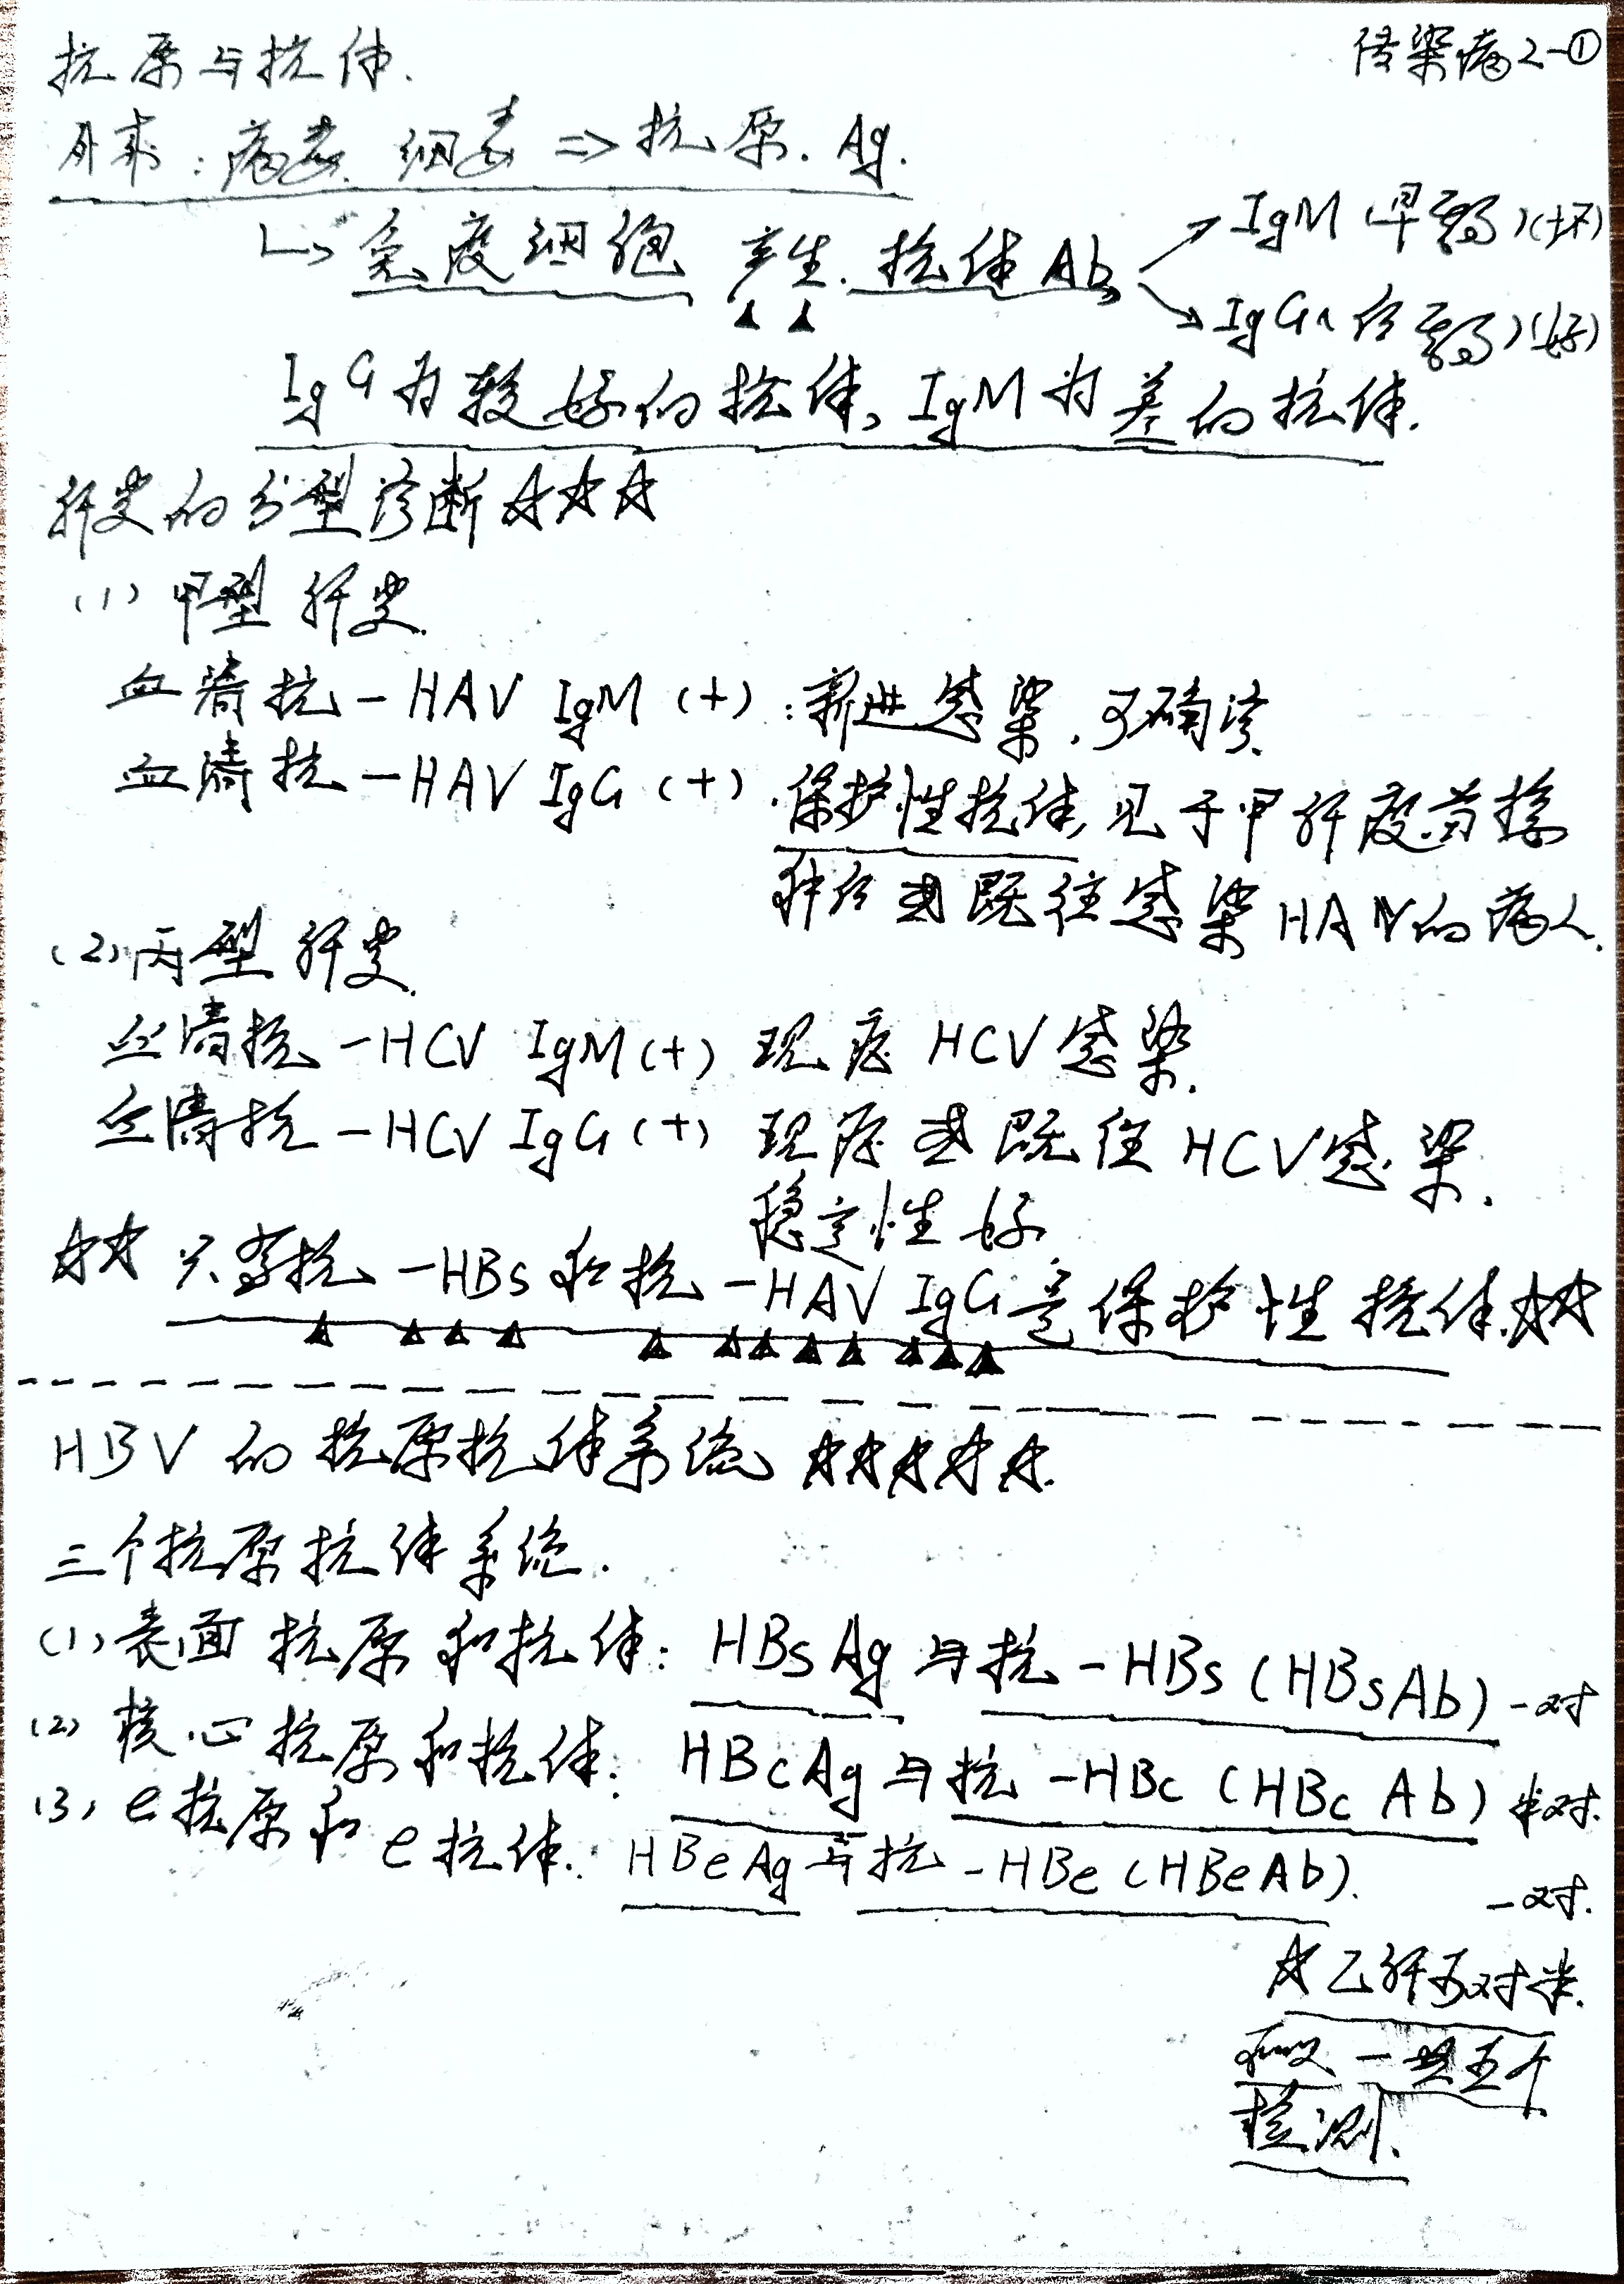 传染病2-①
抗原与抗体.
外来:病毒、细毒 => 抗原. Ag.
↳ 免疫细胞 产生. 抗体 Ab
IgM (早期)(坏)
IgG (后期)(好)
IgG 为较好的抗体, IgM 为差的抗体.
肝炎的分型诊断 ☆☆☆
(1) 甲型肝炎.
血清抗-HAV IgM (+):新进感染,可确诊.
血清抗-HAV IgG (+). 保护性抗体,见于甲肝疫苗接
种后或既往感染HAV的病人.
(2) 丙型肝炎.
血清抗-HCV IgM(+) 现症 HCV感染.
血清抗-HCV IgG(+) 现症或既往 HCV感染.
稳定性好
☆☆ 只有抗-HBs和抗-HAV IgG是保护性抗体.☆☆
HBV的抗原抗体系统 ☆☆☆☆☆.
三个抗原抗体系统.
(1) 表面抗原和抗体: HBsAg与抗-HBs (HBsAb) 一对
(2) 核心抗原和抗体: HBcAg与抗-HBc (HBc Ab) 半对.
(3) e抗原和e抗体: HBeAg与抗-HBe (HBeAb). 一对.
☆乙肝两对半.
一共五个
检测.